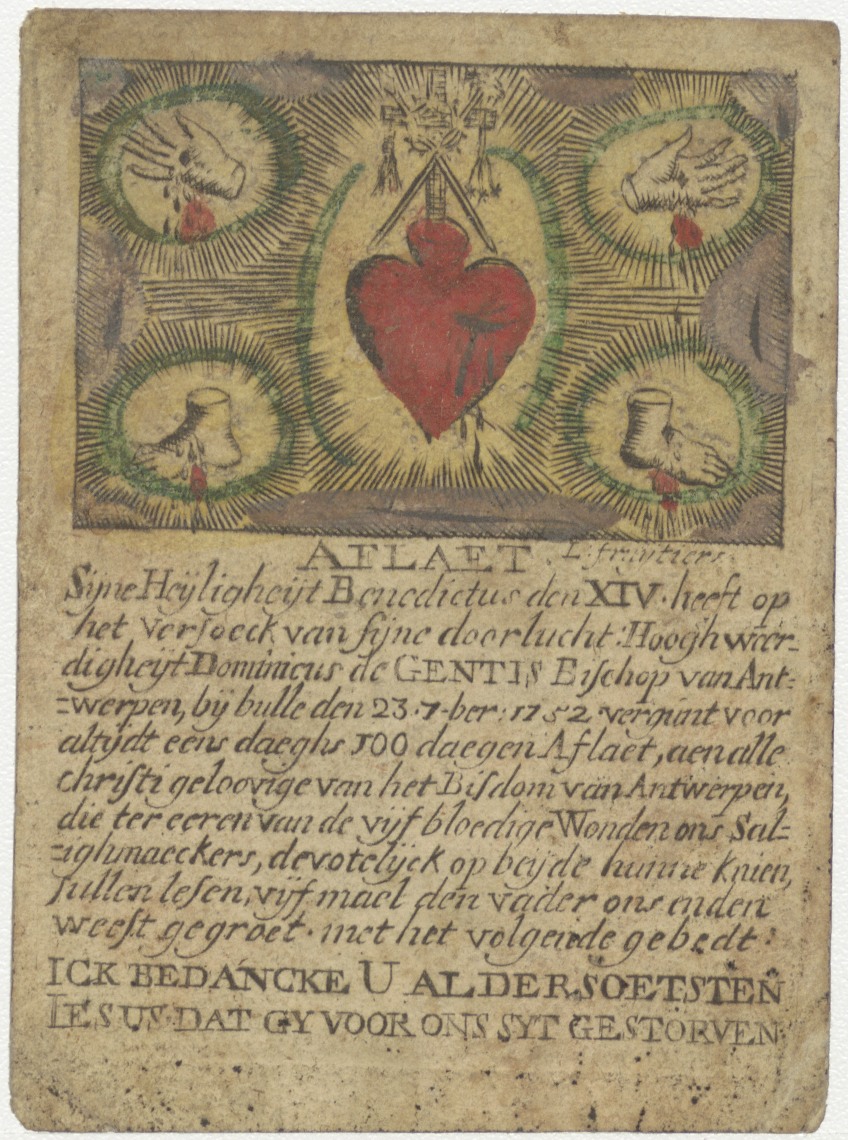 AFLAET. L fruitiers.
Sijne Heÿligheijt Benedictus den XIV. heeft op
het versoeck van sijne doorlucht: Hoogh weer-
digheijt Dominicus de GENTIS Bisschop van Ant=
=werpen, bij bulle den 23.7-ber: 1752 vergunt voor
altijdt eens daeghs 100 daegen Aflaet, aen alle
christi geloovige van het Bisdom van Antwerpen,
die ter eeren van de vijf bloedige Wonden ons Sal=
=ighmaeckers, devotelijck op beijde hunne knien,
sullen lesen, vijf mael den vader ons enden
weest gegroet. met het volgende gebedt:
ICK BEDANCKE U ALDERSOETSTEN
IESUS DAT GY VOOR ONS SYT GESTORVEN